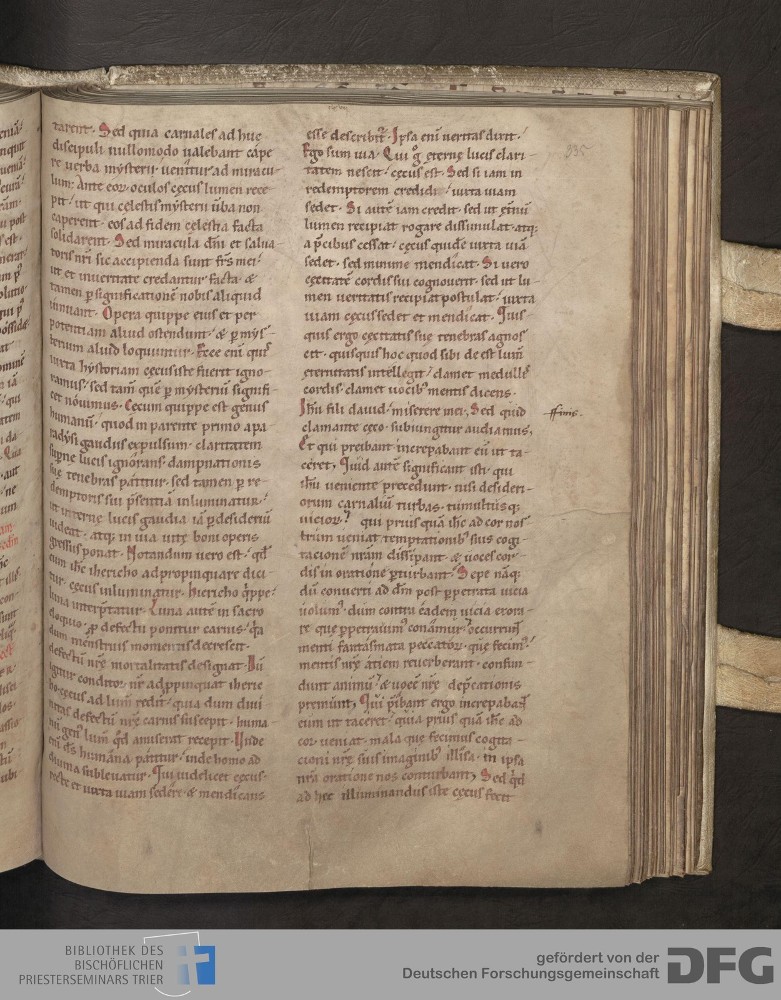 tarent. Sed quia carnales ad huc
discipuli nullomodo ualebant cape
re uerba mysterii uenitur ad miracu
lum. Ante eor oculos cęcus lumen rece
pit, ut qui celestis mysterii uba non
caperent, eos ad fidem cęlestia facta
solidarent. Sed miracula dni et salua
toris nri sic accipienda sunt frs mei,
ut et in ueritate credantur facta, &
tamen p significatione nobis aliquid
innuant. Opera quippe eius et per
potentiam aliud ostendunt, & p mys
terium aliud loquuntur. Ecce eni quis
iuxta hystoriam cęcus iste fuerit igno
ramus, sed tam que p mysteriu signifi
cet nouimus. Cecum quippe est genus
humanu, quod in parente primo a pa
radysi gaudiis expulsum, claritatem
supne lucis ignorans, dampnationis
suę tenebras patitur, sed tamen p re
demptoris sui psentia inluminatur,
ut interne lucis gaudia ia p desideriu
uideat, atq in uia uite boni operis
gressus ponat. Notandum uero est, qd
cum ihc ihericho ad propinquare dici
tur, cęcus inluminatur. hiericho qppe
luna interptatur. Luna aute in sacro
eloquio, p defectu ponitur carnis, qa
dum menstruis momentis decrescit,
defectu nre mortalitatis designat. Du
igitur conditor nr adppinquat iheri
ho cęcus ad lum redit, quia dum diui
nitas defectu nre carnis suscepit, huma
nu gen lum qd amiserat recepit. Unde
eni ds humana patitur, inde homo ad
diuina subleuatur. Qui uidelicet cęcus,
recte et iuxta uiam sedere, & mendicans
esse describit. Ipsa eni ueritas dixit,
Ego sum uia. Qui g eternę lucis clari
tatem nescit, cęcus est. Sed si iam in
redemptorem credidit, iuxta uiam
sedet. Si aute iam credit, sed ut etnu
lumen recipiat rogare dissimulat, atq
a pcibus cessat, cęcus quide iuxta uia
sedet, sed minime mendicat. Si uero
cęcitate cordis sui cognouerit, sed ut lu
men ueritatis recipiat postulat, iuxta
uiam cęcus sedet et mendicat. Quis
quis ergo cęcitatis suę tenebras agnos
cit, quisquis hoc quod sibi de est lum
ęternitatis intellegit, clamet medullis
cordis, clamet uocib mentis dicens.
Ihu fili dauid, miserere mei. Sed quid
clamante cęco subiungitur audiamus,
Et qui preibant increpabant eu ut ta
ceret. Quid aute significant isti, qui
ihu ueniente precedunt, nisi desideri
orum carnaliu turbas, tumultusq
uicior? qui prius qua ihc ad cor nos
trum ueniat temptationib suis cogi
tacione nram dissipant, & uoces cor
dis in oratione pturbant. Sepe naq
du conuerti ad dm post perpetrata uicia
uolum, dum contra eadem uicia exora
re que ppetrauim conamur, occurrunt
menti fantasmata peccator que fecim,
mentis nre aciem reuerberant, confun
dunt animu, & uoce nre depcationis
premunt. Qui pibant ergo increpabant
eum ut taceret, quia prius qua ihc ad
cor ueniat, mala que fecimus cogita
cioni nre suis imaginib illisa, in ipsa
nra oratione nos conturbant. Sed qd
ad hec illuminandus iste cęcus fecit
335
ffinis.
BIBLIOTHEK DES
BISCHÖFLICHEN
PRIESTERSEMINARS TRIER
gefördert von der
Deutschen Forschungsgemeinschaft
DFG